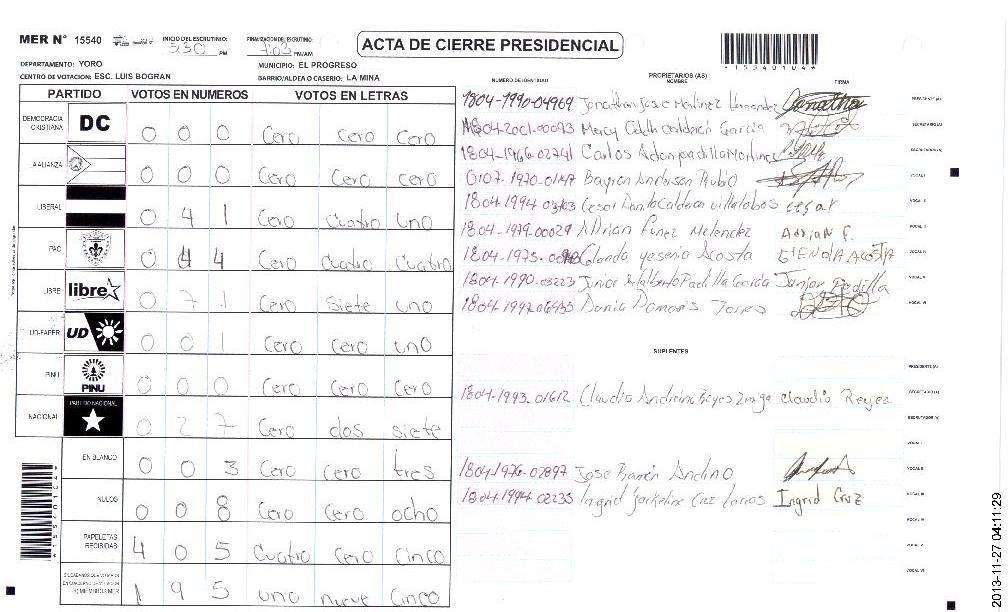 MER N° 15540
INICIO DEL ESCRUTINIO: 5:30 PM
FINALIZACION DEL ESCRUTINIO: 7:03 PM/AM
ACTA DE CIERRE PRESIDENCIAL
*1554010 4*
DEPARTAMENTO: YORO
MUNICIPIO: EL PROGRESO
CENTRO DE VOTACION: ESC. LUIS BOGRAN
BARRIO/ALDEA O CASERIO: LA MINA
PARTIDO VOTOS EN NUMEROS VOTOS EN LETRAS
DEMOCRACIA CRISTIANA DC 0 0 0 Cero Cero Cero
LA ALIANZA 0 0 0 Cero Cero cero
LIBERAL 0 4 1 Cero Cuatro uno
PAC 0 4 4 Cero Cuatro Cuatro
LIBRE libre 0 7 1 Cero Siete uno
UD-FAPER UD 0 0 1 Cero Cero uno
PINU PINU 0 0 0 Cero Cero Cero
NACIONAL PARTIDO NACIONAL 0 2 7 Cero dos siete
EN BLANCO 0 0 3 Cero Cero tres
NULOS 0 0 8 Cero Cero ocho
PAPELETAS RECIBIDAS 4 0 5 Cuatro Cero Cinco
1 9 5 uno nueve Cinco
PROPIETARIOS (AS)
NUMERO DE IDENTIDAD NOMBRE FIRMA
1804-1990-04969 Jonathan Jose Martinez Hernandez Jonathan PRESIDENTE (A)
Calderón Garcia SECRETARIO (A)
1804-1966-02741 Carlos Adan padilla Martinez ESCRUTADOR (A)
0107-1970-01147 Bayron Anderson Rubio VOCAL I
1804-1994 Cesar Danilo Calderon villalobos cesar VOCAL II
1804-1979-00029 Adrian Funez Melendez Adrian F. VOCAL III
1804-1975- yesenia Acosta ACOSTA VOCAL IV
1804-1990-03223 Junior Padilla Garcia Junior Padilla VOCAL V
1804-1992-06433 Dania Torres VOCAL VI
SUPLENTES
PRESIDENTE (A)
1804-1993-01612 Claudia Reyes Zuniga Claudia Reyes SECRETARIO (A)
ESCRUTADOR (A)
VOCAL I
1804-1976-02897 Jose Ramón Andino VOCAL II
1804-1994 02235 Ingrid Jackeline Cruz Ingrid Cruz VOCAL III
VOCAL IV
VOCAL V
VOCAL VI
2013-11-27 04:11:29